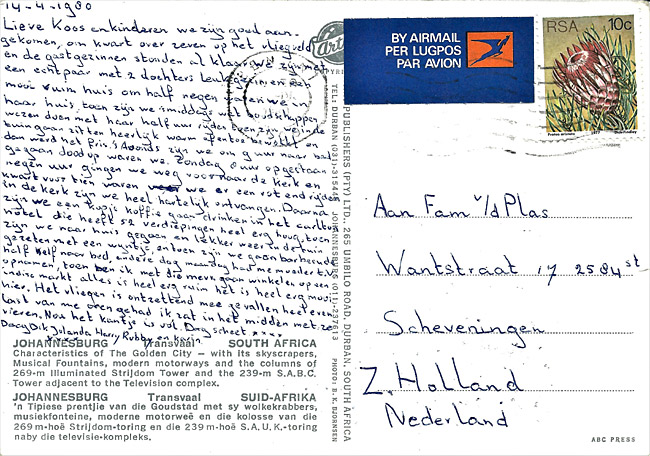 14-4-1980
Lieve Koos en kinderen we zijn goed aan-
gekomen, om kwart over zeven op het vliegveld
en de gastgezinnen stonden al klaar, wij zijn met
een echtpaar met 2 dochters leuk gezin en een
mooi ruim huis om half negen waren we in
haar huis, toen zijn we smiddags wat boodschappen
wezen doen met haar half uur rijden even zijn we in de
tuin gaan zitten heerlijk warm
dan werd het fris. S'Avonds zijn we om 9 uur naar bed
gegaan doodop waren we. Zondag 8 uur opgestaan
negen uur gingen we weg voor naar de kerk en
kwart voor tien waren we er een rot end rijden
in de kerk zijn we heel hartelijk ontvangen. Daarna
zijn we een kopje koffie gaan drinken in het carlton
hotel die heeft 52 verdiepingen heel erg hoog, toen
zijn we naar huis gegaan en lekker weer in de tuin
gezeten met een wijntje, en toen zijn we gaan barbecuen
half elf naar bed, andere dag maandag had me moeder t.v.
opnamen, toen ben ik met die mevr. gaan winkelen op een
indise markt alles is heel erg ruim het is heel erg mooi
hier. Het vliegen is ontzettend mee gevallen heel even
last van me oren gehad ik zat in het midden met ze
vieren. Nou het kantje is vol. Dag scheet xxxx
Daag Dik Jolanda Harry Rubby en kevin
JOHANNESBURG Transvaal SOUTH AFRICA
Characteristics of The Golden City – with its skyscrapers,
Musical Fountains, modern motorways and the columns of
269-m Illuminated Strijdom Tower and the 239-m S.A.B.C.
Tower adjacent to the Television complex.
JOHANNESBURG Transvaal SUID-AFRIKA
'n Tipiese prentjie van die Goudstad met sy wolkekrabbers,
musiekfonteine, moderne motorweë en die kolosse van die
269 m-hoë Strijdom-toring en die 239 m-hoë S.A.U.K.-toring
naby die televisie-kompleks.
Art
COPYRIGHT
PUBLISHERS (PTY) LTD., 265 UMBILO ROAD, DURBAN, SOUTH AFRICA
TEL: DURBAN (031)-315448 JOHANNESBURG (011)-237613
PHOTO: B. K. BJORNSEN
BY AIRMAIL
PER LUGPOS
PAR AVION
RSA 10c
1977
Aan Fam v/d Plas
Wantstraat 17 2584 st
Scheveningen
Z. Holland
Nederland
ABC PRESS